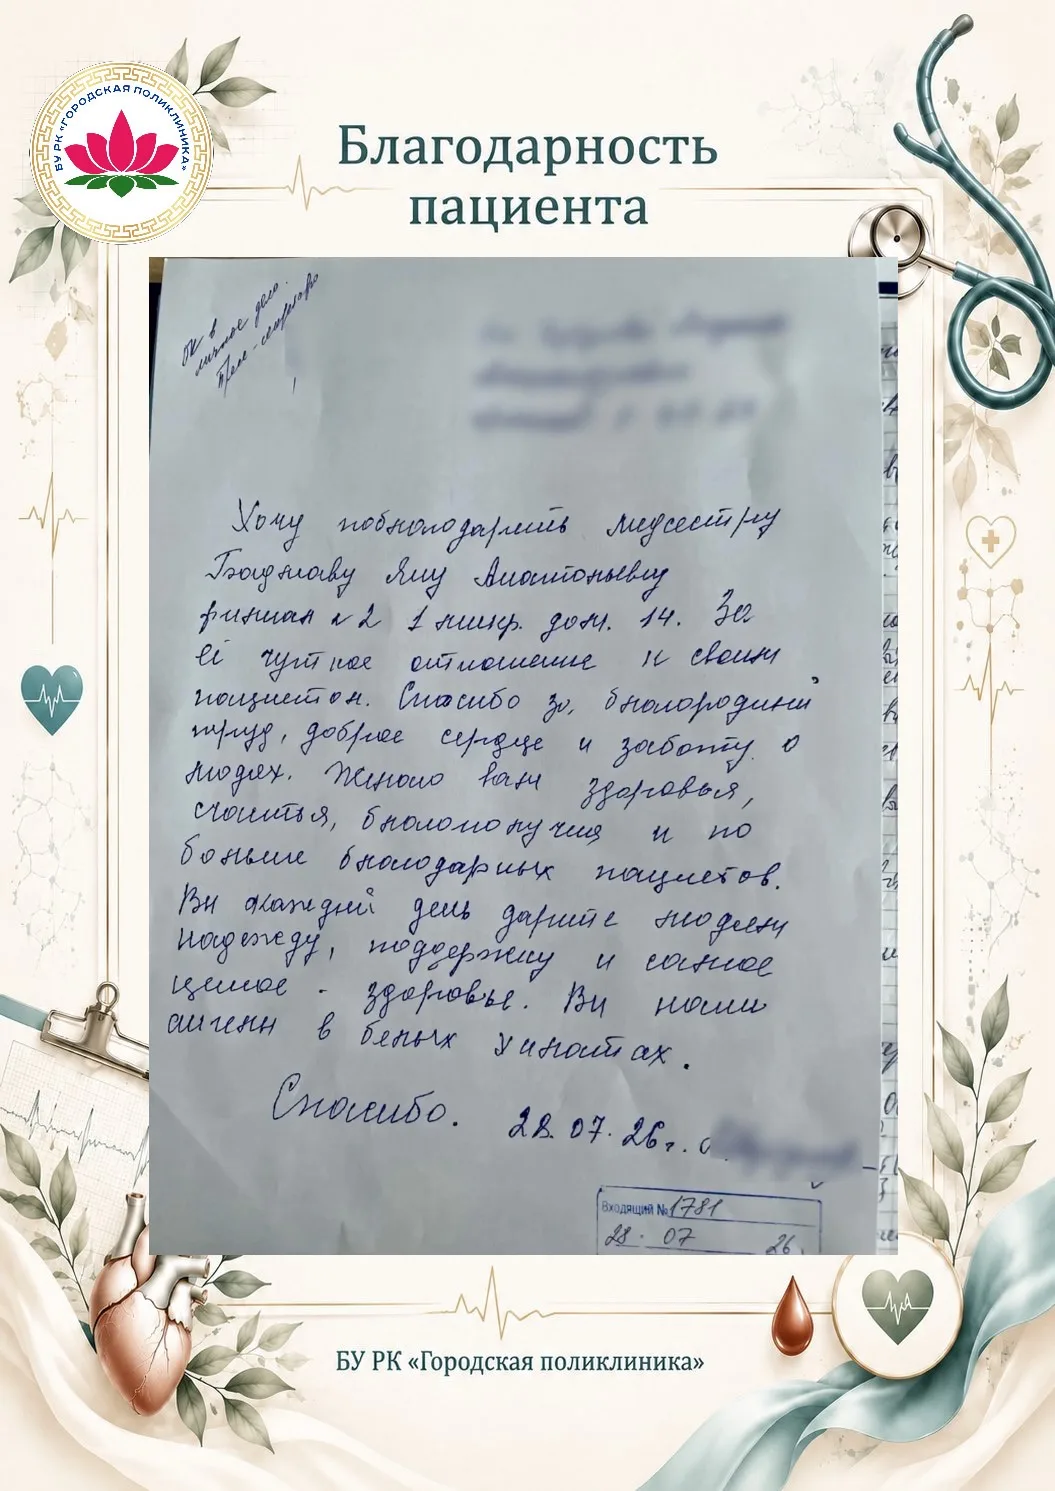 БУ РК «ГОРОДСКАЯ ПОЛИКЛИНИКА»
Благодарность
пациента
ОК в
личное дело.
Хочу поблагодарить медсестру
Бадмаву Яну Анатольевну
филиал № 2 1 микр. дом. 14. За
её чуткое отношение к своим
пациетам. Спасибо за, благородный
труд, доброе сердце и заботу о
людях. Желаю вам здоровья,
счастья, благополучия и по
больше благодарных пациетов.
Вы каждый день дарите людям
надежду, поддержку и самое
ценное - здоровье. Вы наши
ангелы в белых халатах.
Спасибо. 28.07.26г.
Входящий № 1781
28. 07 26
БУ РК «Городская поликлиника»